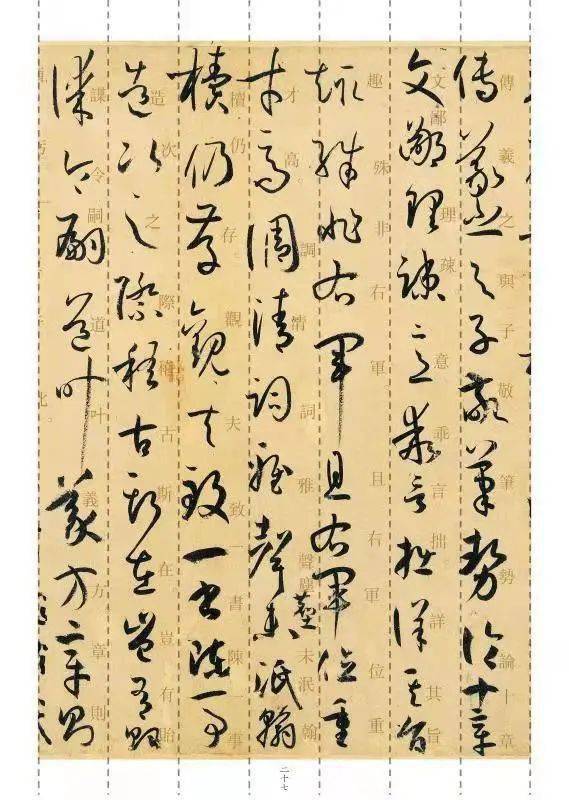 傳羲之與子敬筆勢論十章
文鄙理疎意乖言拙詳其旨
趣殊非右軍且右軍位重
才高調清詞雅聲塵未泯翰
櫝仍存觀夫致一書陳一事
造次之際稽古斯在豈有貽
謀令嗣道叶義方章則
二十七